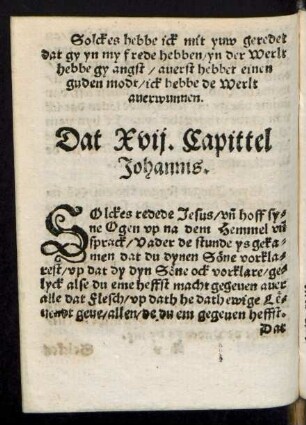 Solckes hebbe ick mit yuw geredet
dat gy yn my frede hebben/ yn der Werlt
hebbe gy angst / auerst hebbet einen
guden modt/ ick hebbe de Werlt
auerwunnen.
Dat Xvij. Capittel
Johannis.
SOlckes redede Jesus/ vñ hoff sy=
ne Ogen vp na dem Hemmel vñ
sprack/ Vader de stunde ys geka=
men dat du dynen Söne vorkla=
rest/ vp dat dy dyn Söne ock vorklare/ ge=
lyck alse du eme heffst macht gegeuen auer
alle dat Flesch/ vp dath he dath ewige Le=
uendt geue/ allen/ de du em gegeuen heffst.
Dat